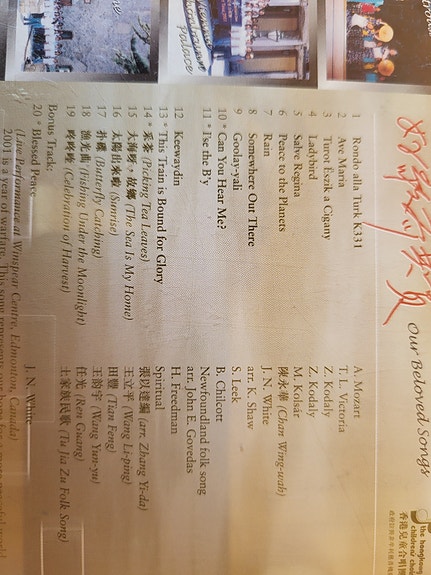 Our Beloved Songs
the hongkong
children's choir
香港兒童合唱團
1 Rondo alla Turk K331 A. Mozart
2 Ave Maria T. L. Victoria
3 Turot Eszik a Cigany Z. Kodaly
4 Ladybird Z. Kodaly
5 Salve Regina M. Kolsár
6 Peace to the Planets 陳永華 (Chan Wing-wah)
7 Rain J. N. White
8 Somewhere Out There arr. K. Shaw
9 Goolay-yali S. Leek
10 * Can You Hear Me? B. Chilcott
11 * I'se the B'y Newfoundland folk song
arr. John E. Govedas
12 Keewaydin H. Freedman
13 * This Train is Bound for Glory Spiritual
14 * 采茶 (Picking Tea Leaves) 張以達編 (arr. Zhang Yi-da)
15 * 大海呀，故鄉 (The Sea Is My Home) 王立平 (Wang Li-ping)
16 * 太陽出來啦 (Sunrise) 田豐 (Tian Feng)
17 * 扑蝶 (Butterfly Catching) (Wang Yun-yu)
18 * 漁光曲 (Fishing Under the Moonlight) 任光 (Ren Guang)
19 * 咚咚喹 (Celebration of Harvest) 土家族民歌 (Tu Jia Zu Folk Song)
Bonus Track:
20 * Blessed Peace J. N. White
(Live Performance at Winspear Centre, Edmonton, Canada)
2001 is a year of warfare. This song represents our